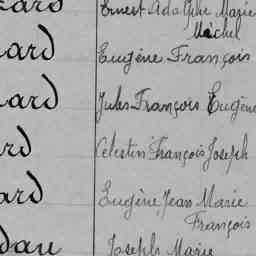 Ernest Adolphe Marie
Michel
ard Eugène François
ard Jules François Eugène
rd Celestin François Joseph
ard Eugène Jean Marie
François
dan Joseph Marie